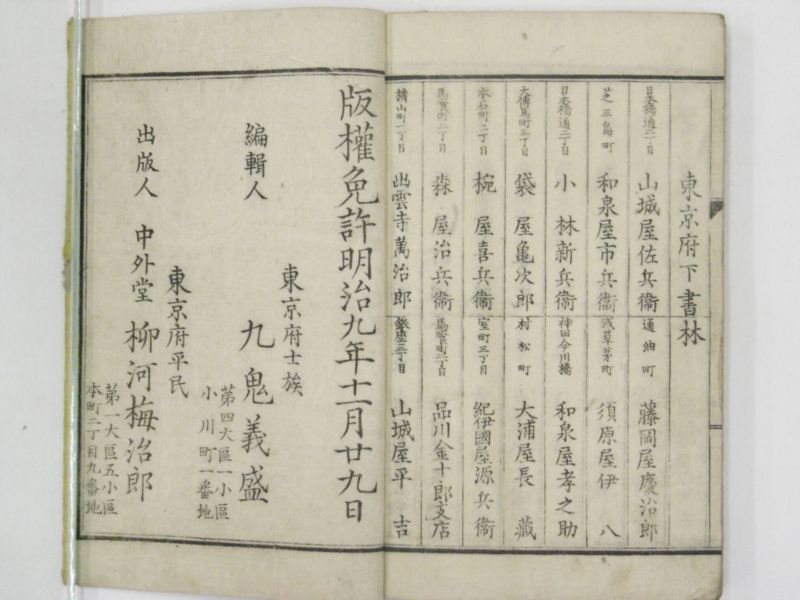 東京府下書林
日本橋通二丁目 山城屋佐兵衞 通油町 藤岡屋慶治郎
芝三島町 和泉屋市兵衞 浅草茅町 須原屋伊八
日本橋通二丁目 小林新兵衞 神田今川橋 和泉屋孝之助
大傳馬町三丁目 袋屋亀次郎 村松町 大浦屋長藏
本石町二丁目 椀屋喜兵衞 室町三丁目 紀伊國屋源兵衞
馬喰町二丁目 森屋治兵衞 馬喰町二丁目 品川金十郎支店
横山町一丁目 出雲寺萬治郎 銀座三丁目 山城屋平吉
版權免許明治九年十一月廿九日
東京府士族
編輯人 九鬼義盛
第四大區一小區
小川町一番地
東京府平民
出版人 中外堂 柳河梅治郎
第一大區五小區
本町二丁目九番地